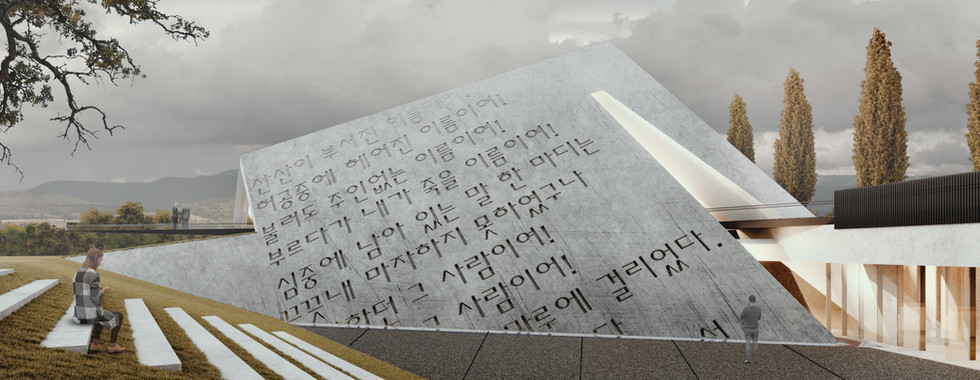 산산이 부서진 이름이여!
허공중에 헤어진 이름이여!
불러도 주인없는 이름이여!
부르다가 내가 죽을 이름이여!
심중에 남아 있는 말 한 마디는
끝끝내 마자하지 못하였구나
하던 그 사람이여!
하던 그 사람이여!
마루에 걸리었다.